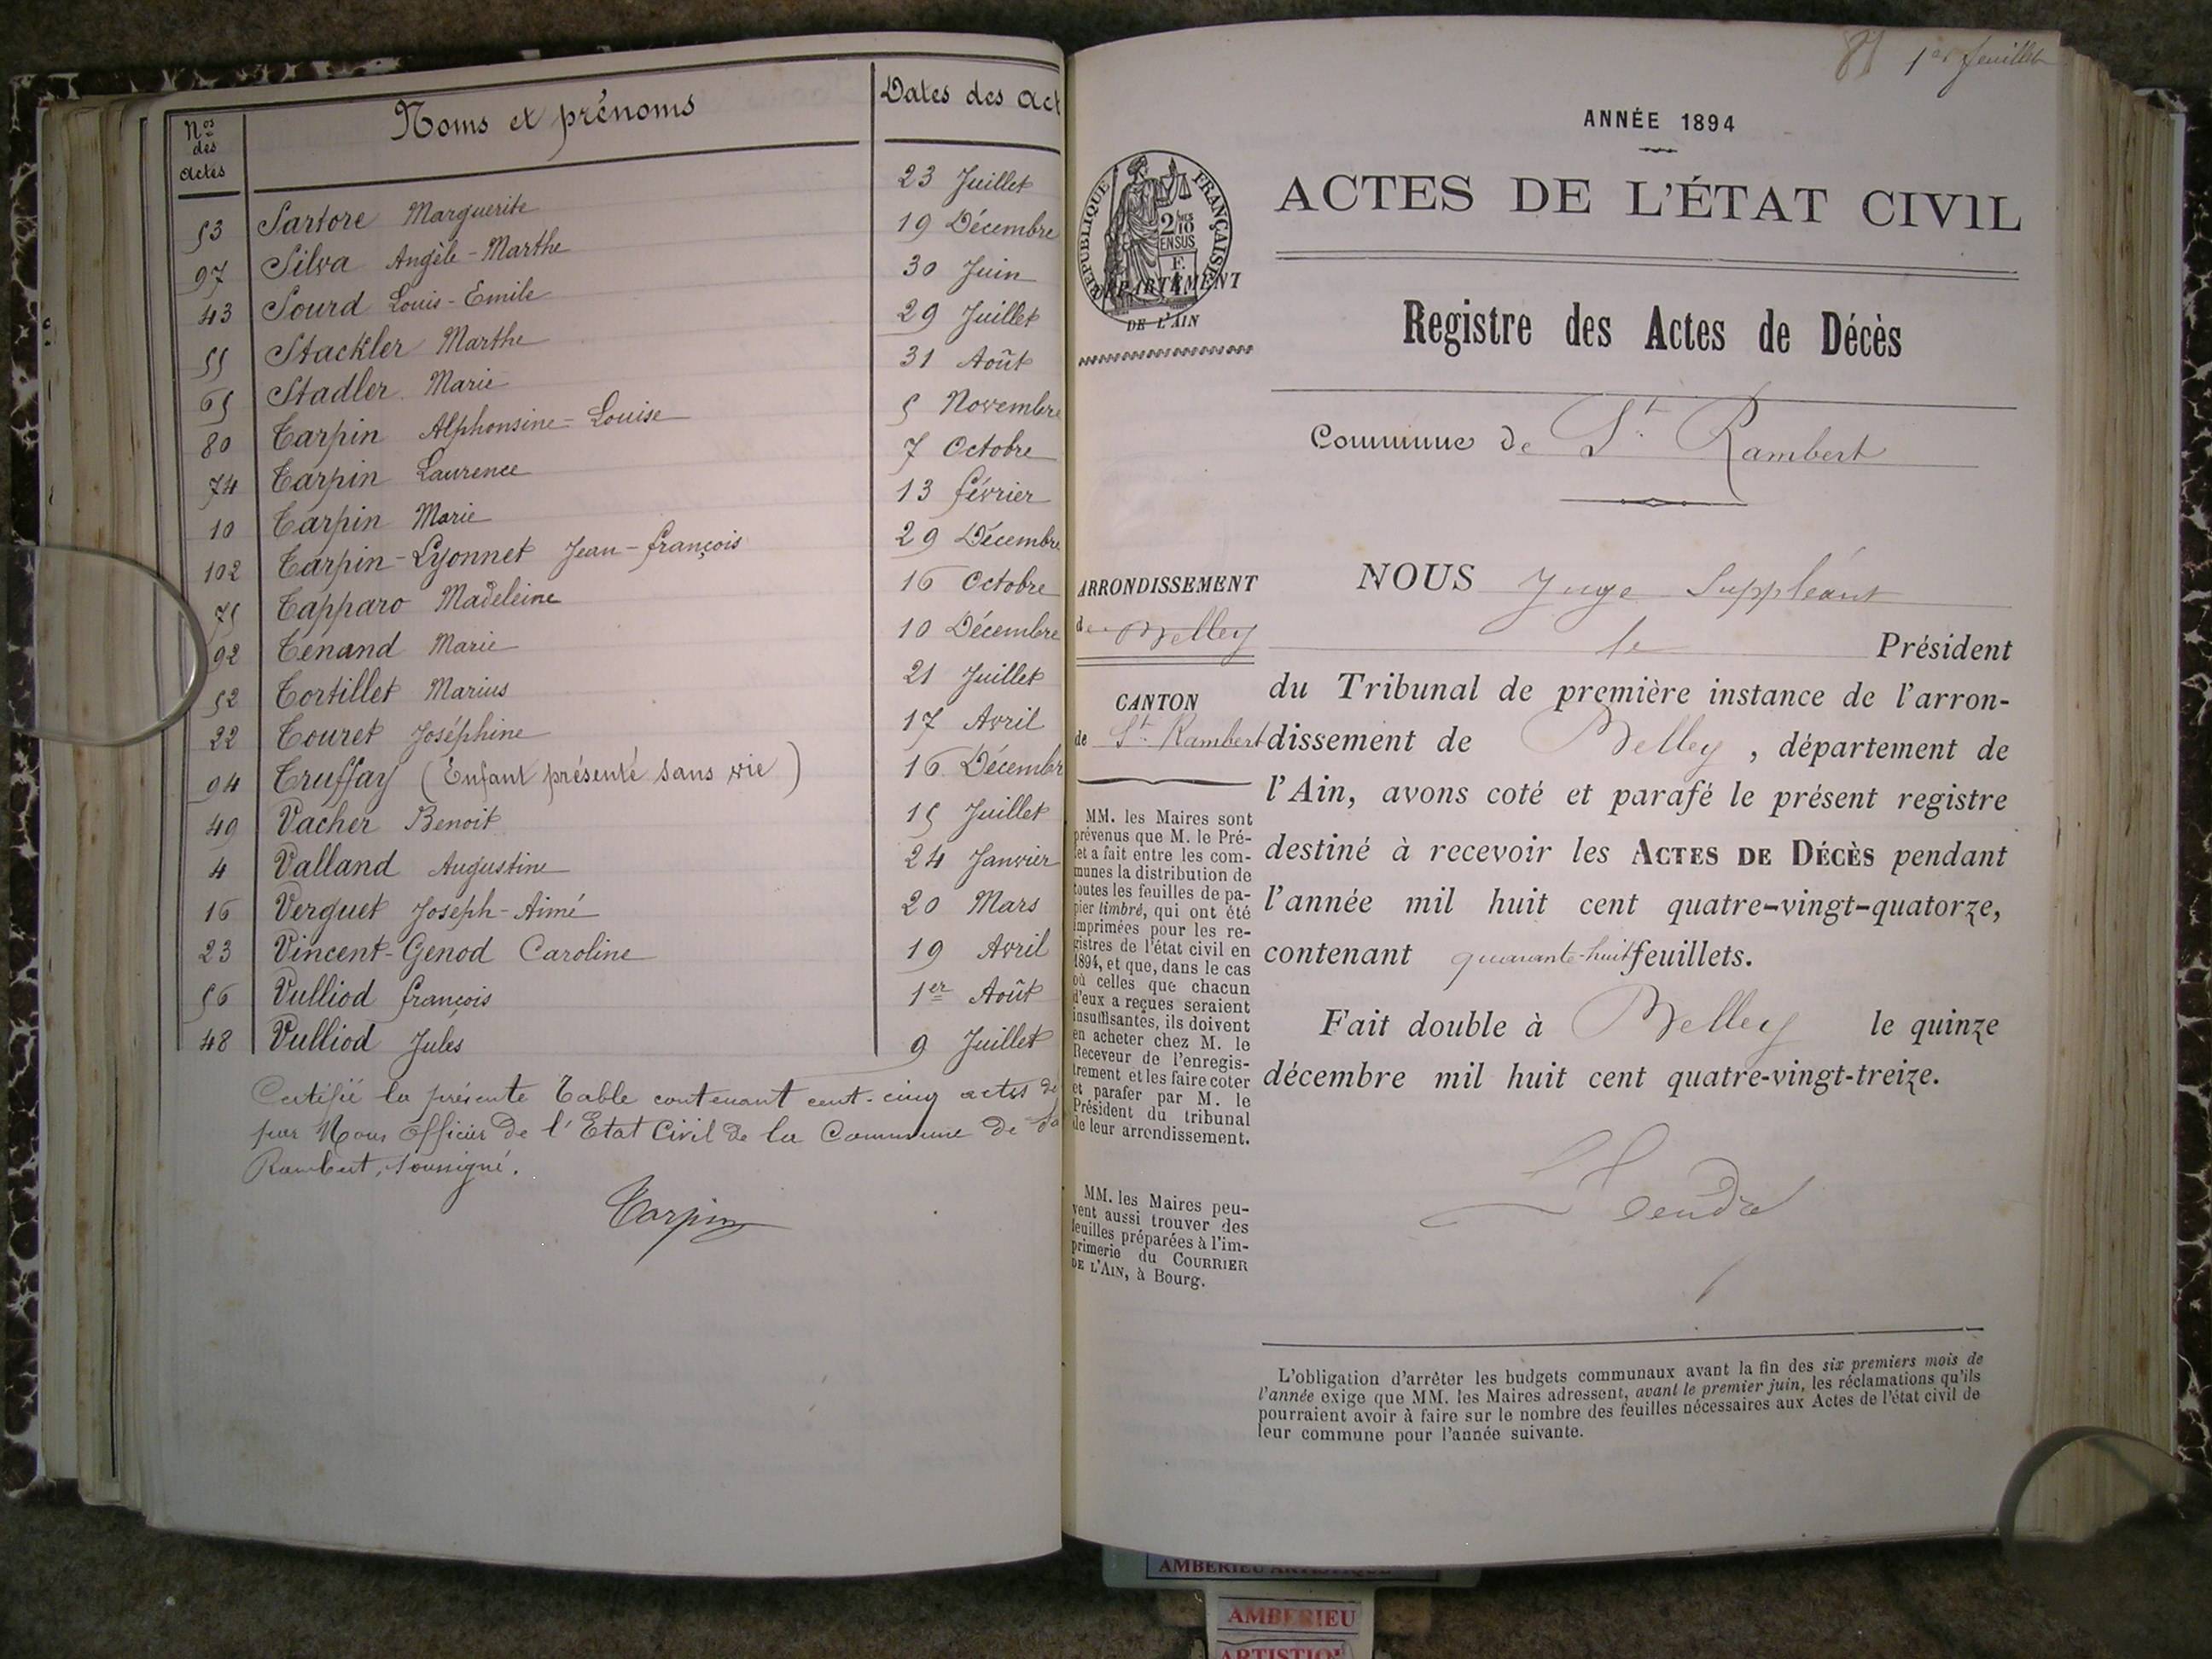 Nos des actes Noms et prénoms Dates des Act
53 Sartore Marguerite 23 Juillet
97 Silva Angèle-Marthe 19 Décembre
43 Sourd Louis-Emile 30 Juin
55 Stackler Marthe 29 Juillet
65 Stadler Marie 31 Août
80 Tarpin Alphonsine-Louise 5 Novembre
74 Tarpin Laurence 7 Octobre
10 Tarpin Marie 13 février
102 Tarpin-Lyonnet Jean-françois 29 Décembre
75 Tapparo Madeleine 16 Octobre
92 Tenand Marie 10 Décembre
52 Tortillet Marius 21 Juillet
22 Touret Joséphine 17 Avril
94 Truffay (Enfant présenté sans vie) 16 Décembr
49 Vacher Benoit 15 Juillet
4 Valland Augustine 24 Janvier
16 Verguet Joseph-Aimé 20 Mars
23 Vincent-Genod Caroline 19 Avril
56 Vulliod françois 1er Août
48 Vulliod Jules 9 Juillet
Certifié la présente Table contenant cent-cinq actes de
par Nous Officier de l'Etat Civil de la Commune de St
Rambert, soussigné.
Tarpin
81 1er feuillet
ANNÉE 1894
ACTES DE L'ÉTAT CIVIL
RÉPUBLIQUE FRANÇAISE
2/10 EN SUS
DÉPARTEMENT
DE L'AIN
Registre des Actes de Décès
Commune de St Rambert
ARRONDISSEMENT
de Belley
CANTON
de St Rambert
MM. les Maires sont
prévenus que M. le Pré-
fet a fait entre les com-
munes la distribution de
toutes les feuilles de pa-
pier timbré, qui ont été
imprimées pour les re-
gistres de l'état civil en
1894, et que, dans le cas
où celles que chacun
d'eux a reçues seraient
insuffisantes, ils doivent
en acheter chez M. le
Receveur de l'enregis-
trement et les faire coter
et parafer par M. le
Président du tribunal
de leur arrondissement.
MM. les Maires peu-
vent aussi trouver des
feuilles préparées à l'im-
primerie du COURRIER
DE L'AIN, à Bourg.
NOUS Juge Suppléant
le Président
du Tribunal de première instance de l'arron-
dissement de Belley, département de
l'Ain, avons coté et parafé le présent registre
destiné à recevoir les ACTES DE DÉCÈS pendant
l'année mil huit cent quatre-vingt-quatorze,
contenant quarante-huit feuillets.
Fait double à Belley le quinze
décembre mil huit cent quatre-vingt-treize.
L'obligation d'arrêter les budgets communaux avant la fin des six premiers mois de
l'année exige que MM. les Maires adressent, avant le premier juin, les réclamations qu'ils
pourraient avoir à faire sur le nombre des feuilles nécessaires aux Actes de l'état civil de
leur commune pour l'année suivante.
AMBERIEU ARTISTIQUE
AMBERIEU
ARTISTIQU